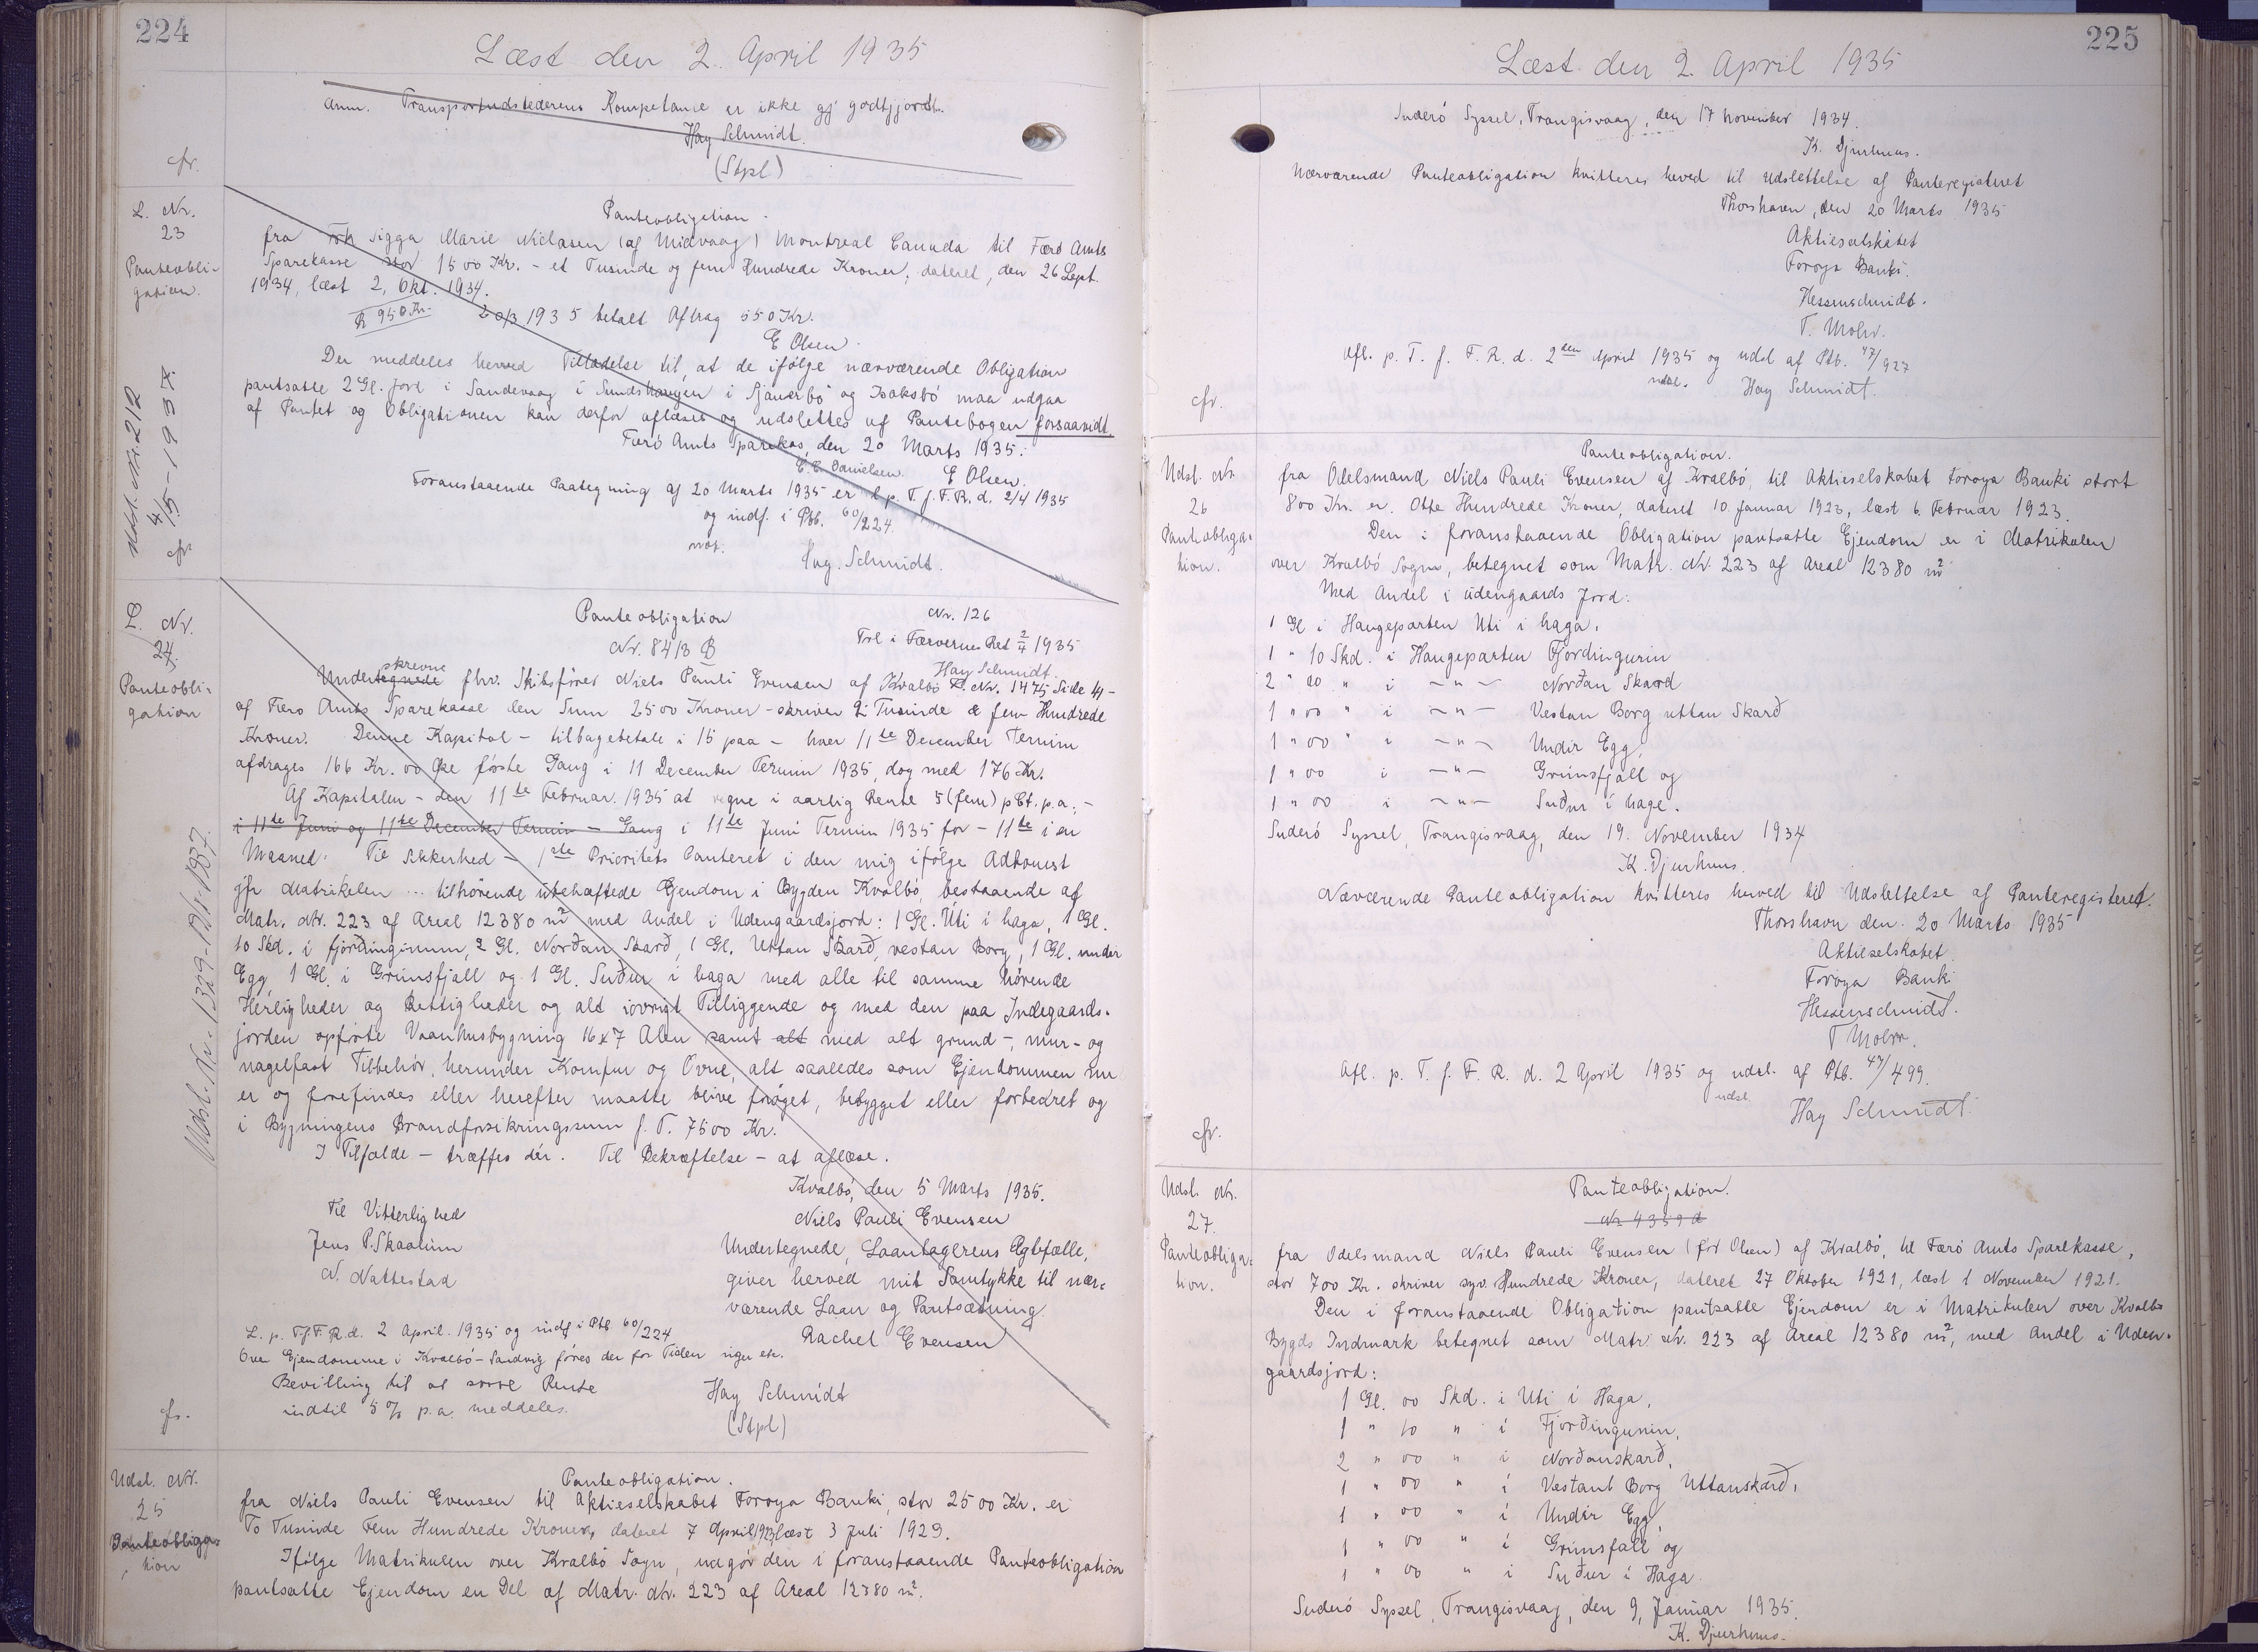 224
Læst den 2. April 1935
Anm. Transportudstederens Kompetance er ikke gj godtgjordt.
Hay Schmidt.
(Stpl)
cfr.
L. Nr.
23
Panteobli-
gation.
Panteobligation.
fra Frk Sigga Marie Niclasen (af Midvaag) Montreal Canada til Færø Amts
Sparekasse stor 1500 Kr. - et Tusinde og fem Hundrede Kroner, dateret, den 26 Sept.
1934, læst 2, Okt. 1934.
R 950 Kr. 20/3 1935 betalt Afdrag 550 Kr.
E Olsen.
Der meddeles herved Tilladelse til, at de ifølge nærværende Obligation
pantsatte 2 Gl. Jord i Sandevaag í Sundshaugen i Sjáverbø og Isaksbó maa udgaa
af Pantet og Obligationen kan derfor aflæses og udslettes af Pantebogen forsaavidt.
Færó Amts Sparekas, den 20 Marts 1935.
E. E. Danielsen. E Olsen.
Foranstaaende Paategning af 20 Marts 1935 er l p. T. f. F. R. d. 2/4 1935
og indf. i Ptb. 60/224.
not.
Hay. Schmidt.
Udsl. Nr. 212
4/5-1937.
cfr
L. Nr.
24.
Panteobli-
gation
Panteobligation Nr. 126
Nr. 8413 B Tvl i Færøernes Ret 2/4 1935
Hay Schmidt.
skrevne
Undertegnede fhv. Skibsfører Niels Pauli Evensen af Kvalbø F. Nr. 1475 Side 4-
af Færo Amts Sparekasse den Sum 2500 Kroner - skriver 2 Tusinde & fem Hundrede
Kroner. Denne Kapital - tilbagebetale i 15 paa - hver 11te December Termin
afdrages 166 Kr. 00 Øre første Gang i 11 December Termin 1935, dog med 176 Kr.
Af Kapitalen - den 11te Februar. 1935 at regne i aarlig Rente 5 (fem) pCt. p.a. -
i 11te Juni og 11te December Termin - Gang i 11te Juni Termin 1935 for - 11te i en
Maaned. Til Sikkerhed - 1ste Prioritets Panteret i den mig ifølge Adkomst
jfr Matrikelen ... tilhørende ubehæftede Ejendom i Bygden Kvalbø, bestaaende af
Matr. Nr. 223 af Areal 12380 m² med Andel i Udengaardsjord: 1 Gl. Úti i haga, 1 Gl.
10 Skd. i fjórdinginum, 2 Gl. Norðan Skarð, 1 Gl. Uttan Skarð, vestan Borg, 1 Gl. undir
Egg, 1 Gl. i Grúnsfjall og 1 Gl. Suður i haga med alle til samme hørende
Herligheder og Rettigheder og alt iøvrigt Tilliggende og med den paa Indegaards-
jorden opførte Vaaningsbygning 16x7 Alen samt alt med alt grund-, mur- og
nagelfast Tilbehør, herunder Komfur og Ovne, alt saaledes som Ejendommen nu
er og forefindes eller herefter maatte blive forøget, bebygget eller forbedret og
i Bygningens Brandforsikringssum f. T. 7500 Kr.
I Tilfælde - træffes dér. Til Bekræftelse - at aflæse.
Kvalbø, den 5 Marts 1935.
Til Vitterlighed Niels Pauli Evensen
Jens P. Skaalum Undertegnede, Laantagerens Ægtefælle,
N. Nattestad giver herved mit Samtykke til nær-
værende Laan og Pantsætning
Rachel Evensen
L. p. T.f.F.R.d. 2 April. 1935 og indf i Ptb. 60/224
Over Ejendomme i Kvalbø-Sandvig føres der for Tiden
Bevilling til at svare Rente
indtil 5% p.a. meddeles.
Hay Schmidt
(Stpl)
Udsl. Nr. 1329-12/11-1887.
cfr.
Udsl. Nr.
25
Panteobliga-
tion
Panteobligation.
fra Niels Pauli Evensen til Aktieselskabet Foroya Banki, stor 2500 Kr. er
To Tusinde Fem Hundrede Kroner, dateret 7 April 1923 læst 3 Juli 1923.
Ifølge Matrikulen over Kvalbø Sogn, udgör den i foranstaaende Panteobligation
pantsatte Ejendom en Del af Matr. Nr. 223 af Areal 12380 m².
225
Læst den 2. April 1935
Suderó Syssel, Trangisvaag, den 17 November 1934.
K. Djurhuus.
Nærværende Panteobligation kvitteres herved til Udslettelse af Panteregisteret
Thorshavn, den 20 Marts 1935
Aktieselskabet
Foroya Banki.
Hessenschmidt.
T. Mohr.
Afl. p. T. f. F. R. d. 2den April 1935 og udsl af Ptb. 47/927
udsl. Hay Schmidt.
cfr.
Udsl. Nr.
26
Panteobliga-
tion.
Panteobligation.
fra Odelsmand Niels Pauli Evensen af Kvalbø, til Aktieselskabet Foroya Banki stort
800 Kr. er. Otte Hundrede Kroner, dateret 10. Januar 1923, læst 6. Februar 1923.
Den i foranstaaende Obligation pantsatte Ejendom er i Matrikulen
over Kvalbó Sogn, betegnet som Matr. Nr. 223 af Areal 12380 m²
Med Andel i udengaards Jord:
1 Gl i Haugeparten Uti i haga,
1 " 10 Skd. i Haugeparten Fjordingurin
2 " 00 " i -"- Norðan Skard
1 " 00 " i -"- Vestan Borg uttan Skarð
1 " 00 " i -"- Undir Egg,
1 " 00 i -"- Grúnsfjall og
1 " 00 i -"- Suður i hage.
Suderó Syssel, Trangisvaag, den 19. November 1934
K. Djurhuus.
Nærværende Panteobligation kvitteres herved til Udslettelse af Panteregisteret.
Thorshavn den. 20 Marts 1935
Aktieselskabet
Foroya Banki
Hessenschmidt.
T Mohr.
Afl. p. T. f. F. R. d. 2 April 1935 og udsl. af Ptb. 47/499.
udsl.
Hay Schmidt.
cfr.
Udsl. Nr.
27.
Panteobliga-
tion.
Panteobligation.
Nr 4359 d
fra Odelsmand Niels Pauli Evensen (før Olsen) af Kvalbó, til Færó Amts Sparekasse,
stor 700 Kr. skriver syv Hundrede Kroner, dateret 27 Oktober 1921, læst 1 November 1921.
Den i foranstaaende Obligation pantsatte Ejendom er i Matrikulen over Kvalbø
Bygds Indmark betegnet som Matr. Nr. 223 af Areal 12380 m², med Andel i Uden-
gaardsjord:
1 Gl. 00 Skd. i Uti i Haga,
1 " 10 " i Fjorðingunin,
2 " 00 " i Norðanskarð,
1 " 00 " i Vestant Borg Uttanskarð,
1 " 00 " i Undir Egg,
1 " 00 " i Grúnsfall og
1 " 00 " i Suður i Haga.
Suderó Syssel, Trangisvaag, den 9, Januar 1935.
K. Djurhuus.